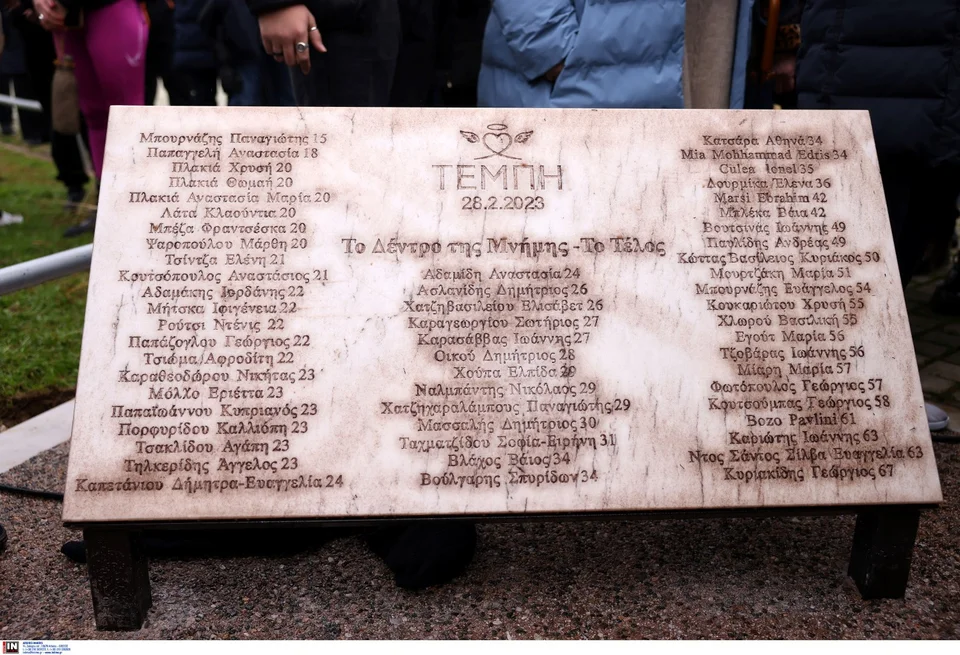 Μπουρνάζης Παναγιώτης 15
Παπαγγελή Αναστασία 18
Πλακιά Χρυσή 20
Πλακιά Θωμαή 20
Πλακιά Αναστασία Μαρία 20
Λάτα Κλαούντια 20
Μπέζα Φραντσέσκα 20
Ψαροπούλου Μάρθη 20
Τσίντζα Ελένη 21
Κουτσόπουλος Αναστάσιος 21
Αδαμάκης Ιορδάνης 22
Μήτσκα Ιφιγένεια 22
Ρούτσι Ντένις 22
Παπάζογλου Γεώργιος 22
Τσιώμα Αφροδίτη 22
Καραθεοδώρου Νικήτας 23
Μόλχο Εριέττα 23
Παπαϊωάννου Κυπριανός 23
Πορφυρίδου Καλλιόπη 23
Τσακλίδου Αγάπη 23
Τηλκερίδης Άγγελος 23
Καπετάνιου Δήμητρα-Ευαγγελία 24
ΤΕΜΠΗ
28.2.2023
Το Δέντρο της Μνήμης -Το Τέλος
Αδαμίδη Αναστασία 24
Ασλανίδης Δημήτριος 26
Χατζηβασιλείου Ελισάβετ 26
Καραγεωργίου Σωτήριος 27
Καρασάββας Ιωάννης 27
Οικού Δημήτριος 28
Χούπα Ελπίδα 29
Ναλμπάντης Νικόλαος 29
Χατζηχαραλάμπους Παναγιώτης 29
Μασσαλής Δημήτριος 30
Ταχματζίδου Σοφία-Ειρήνη 31
Βλάχος Βάιος 34
Βούλγαρης Σπυρίδων 34
Κατσάρα Αθηνά 34
Mia Mohhammad Edris 34
Culea Ionel 35
Δουρμίκα Έλενα 36
Marsi Ebrahim 42
Μπλέκα Βάια 42
Βουτσινάς Ιωάννης 49
Παυλίδης Ανδρέας 49
Κώττας Βασίλειος Κυριάκος 50
Μουρτζάκη Μαρία 51
Μπουρνάζης Ευάγγελος 54
Κουκαριώτου Χρυσή 55
Χλωρού Βασιλική 55
Εγούτ Μαρία 56
Τζοβάρας Ιωάννης 56
Μίαρη Μαρία 57
Φωτόπουλος Γεώργιος 57
Κουτσούμπας Γεώργιος 58
Bozo Pavlini 61
Καριώτης Ιωάννης 63
Ντος Σάντος Σίλβα Ευαγγελία 63
Κυριακίδης Γεώργιος 67
IN